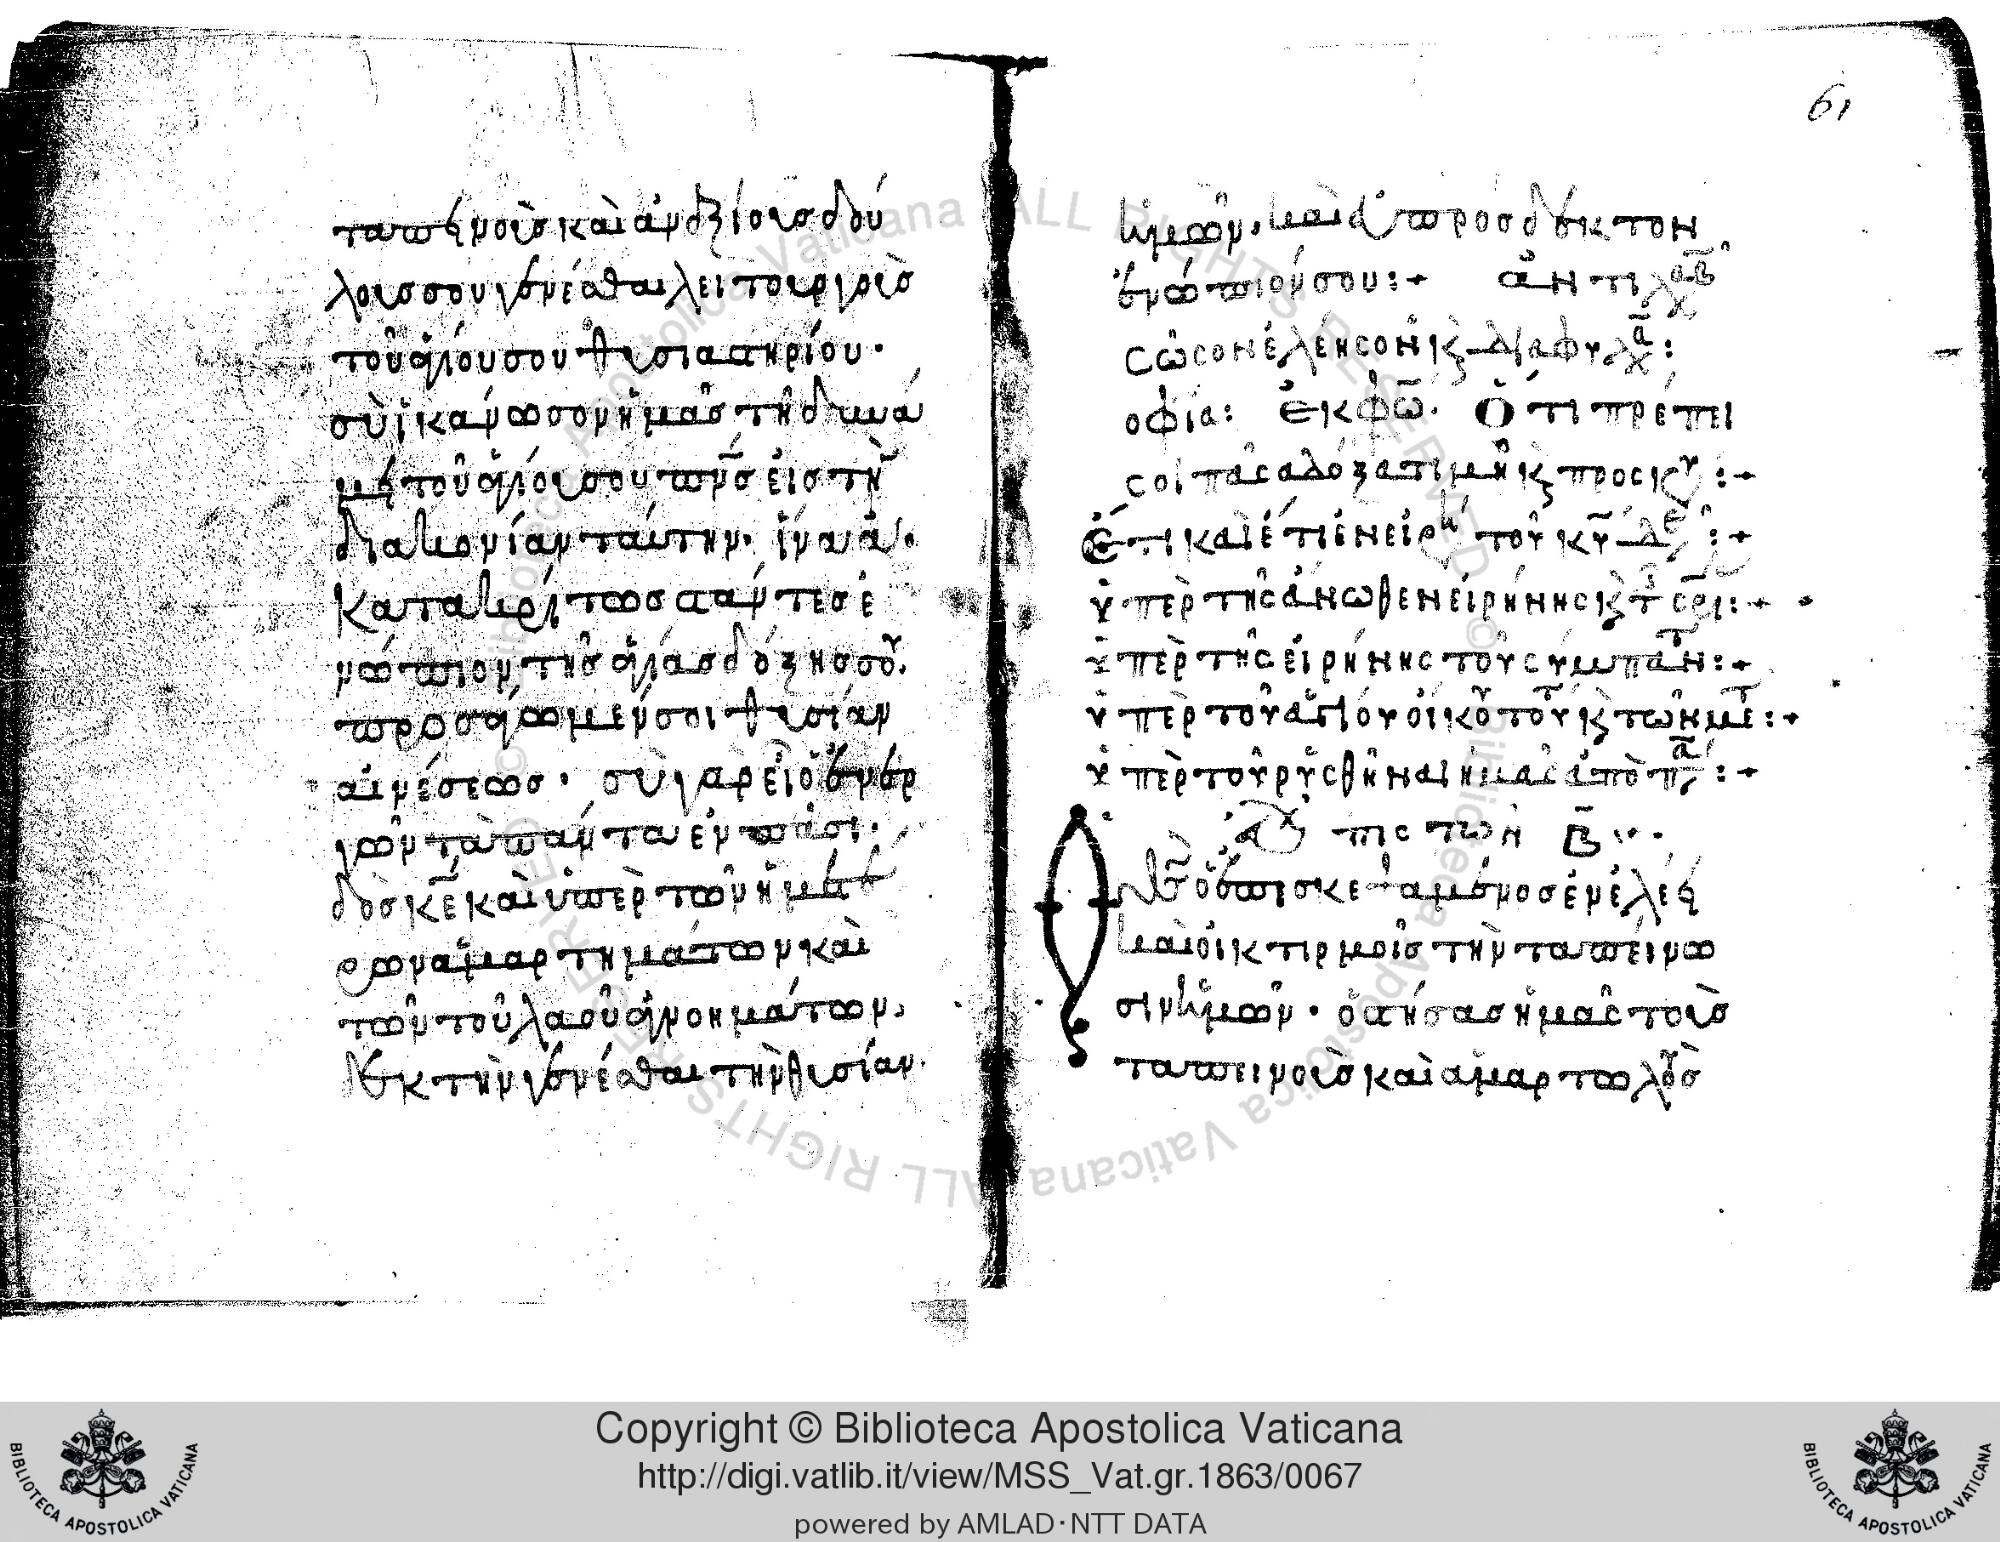 ταπεινοὺς καὶ ἀναξίους δού
λους σου γενέσθαι λειτουργοὺς
τοῦ ἁγίου σου θυσιαστηρίου·
σὺ ἱκάνωσον ἡμᾶς τῇ δυνά
μει τοῦ ἁγίου σου πν̅ς εἰς τὴν
διακονίαν ταύτην· ἵνα ἀ
κατακρίτως στάντες ἐ
νώπιον τῆς ἁγίας δόξης σου.
προσάγωμέν σοι θυσίαν
αἰνέσεως· σὺ γὰρ εἶ ὁ ἐνερ
γῶν τὰ πάντα ἐν πᾶσι·
δὸς κ̅ε καὶ ὑπὲρ τῶν ἡμετέ
ρων ἁμαρτημάτων καὶ
τῶν τοῦ λαοῦ ἀγνοημάτων,
δεκτὴν γενέσθαι τὴν θυσίαν·
61
ἡμῶν· καὶ εὐπρόσδεκτον
ἐνώπιόν σου:+ ἀντιλαβ
σῶσον ἐλέησον κ̀ διαφύλα:
οφία: ἐκφω. Ὅτι πρέπει
σοι πᾶσα δόξα τιμὴ κ̀ προσκυ:+
Ἔτι καὶ ἔτι ἐν εἰρή τοῦ κ̅υ δε:+
ὑπὲρ τῆς ἄνωθεν εἰρήνης κ̀ τ σρι:+
ὑπὲρ τῆς εἰρήνης τοῦ σύμπαντ:+
ὑπὲρ τοῦ ἁγίου οἴκου τούτ κ̀ τῶν μετ:+
ὑπὲρ τοῦ ῥυσθῆναι ἡμᾶς ἀπὸ πα:+
εὐχ πιστῶν Β̅
Ὁ θ̅ς ὁ ἐπισκεψάμενος ἐν ἐλέει
καὶ οἰκτιρμοῖς τὴν ταπείνω
σιν ἡμῶν· ὁ στήσας ἡμᾶς τοὺς
ταπεινοὺς καὶ ἁμαρτωλοὺς
Copyright © Biblioteca Apostolica Vaticana
http://digi.vatlib.it/view/MSS_Vat.gr.1863/0067
powered by AMLAD·NTT DATA
BIBLIOTECA APOSTOLICA VATICANA
BIBLIOTECA APOSTOLICA VATICANA